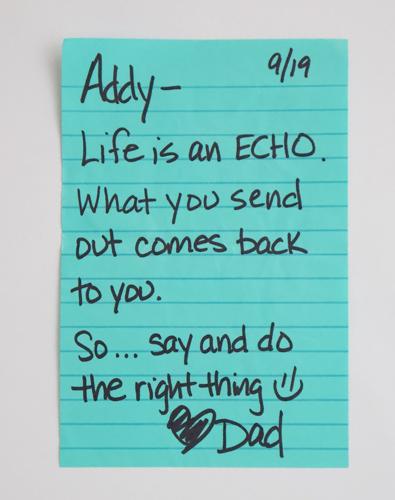 Addy- 9/19
Life is an ECHO.
What you send
out comes back
to you.
So... say and do
the right thing
Dad